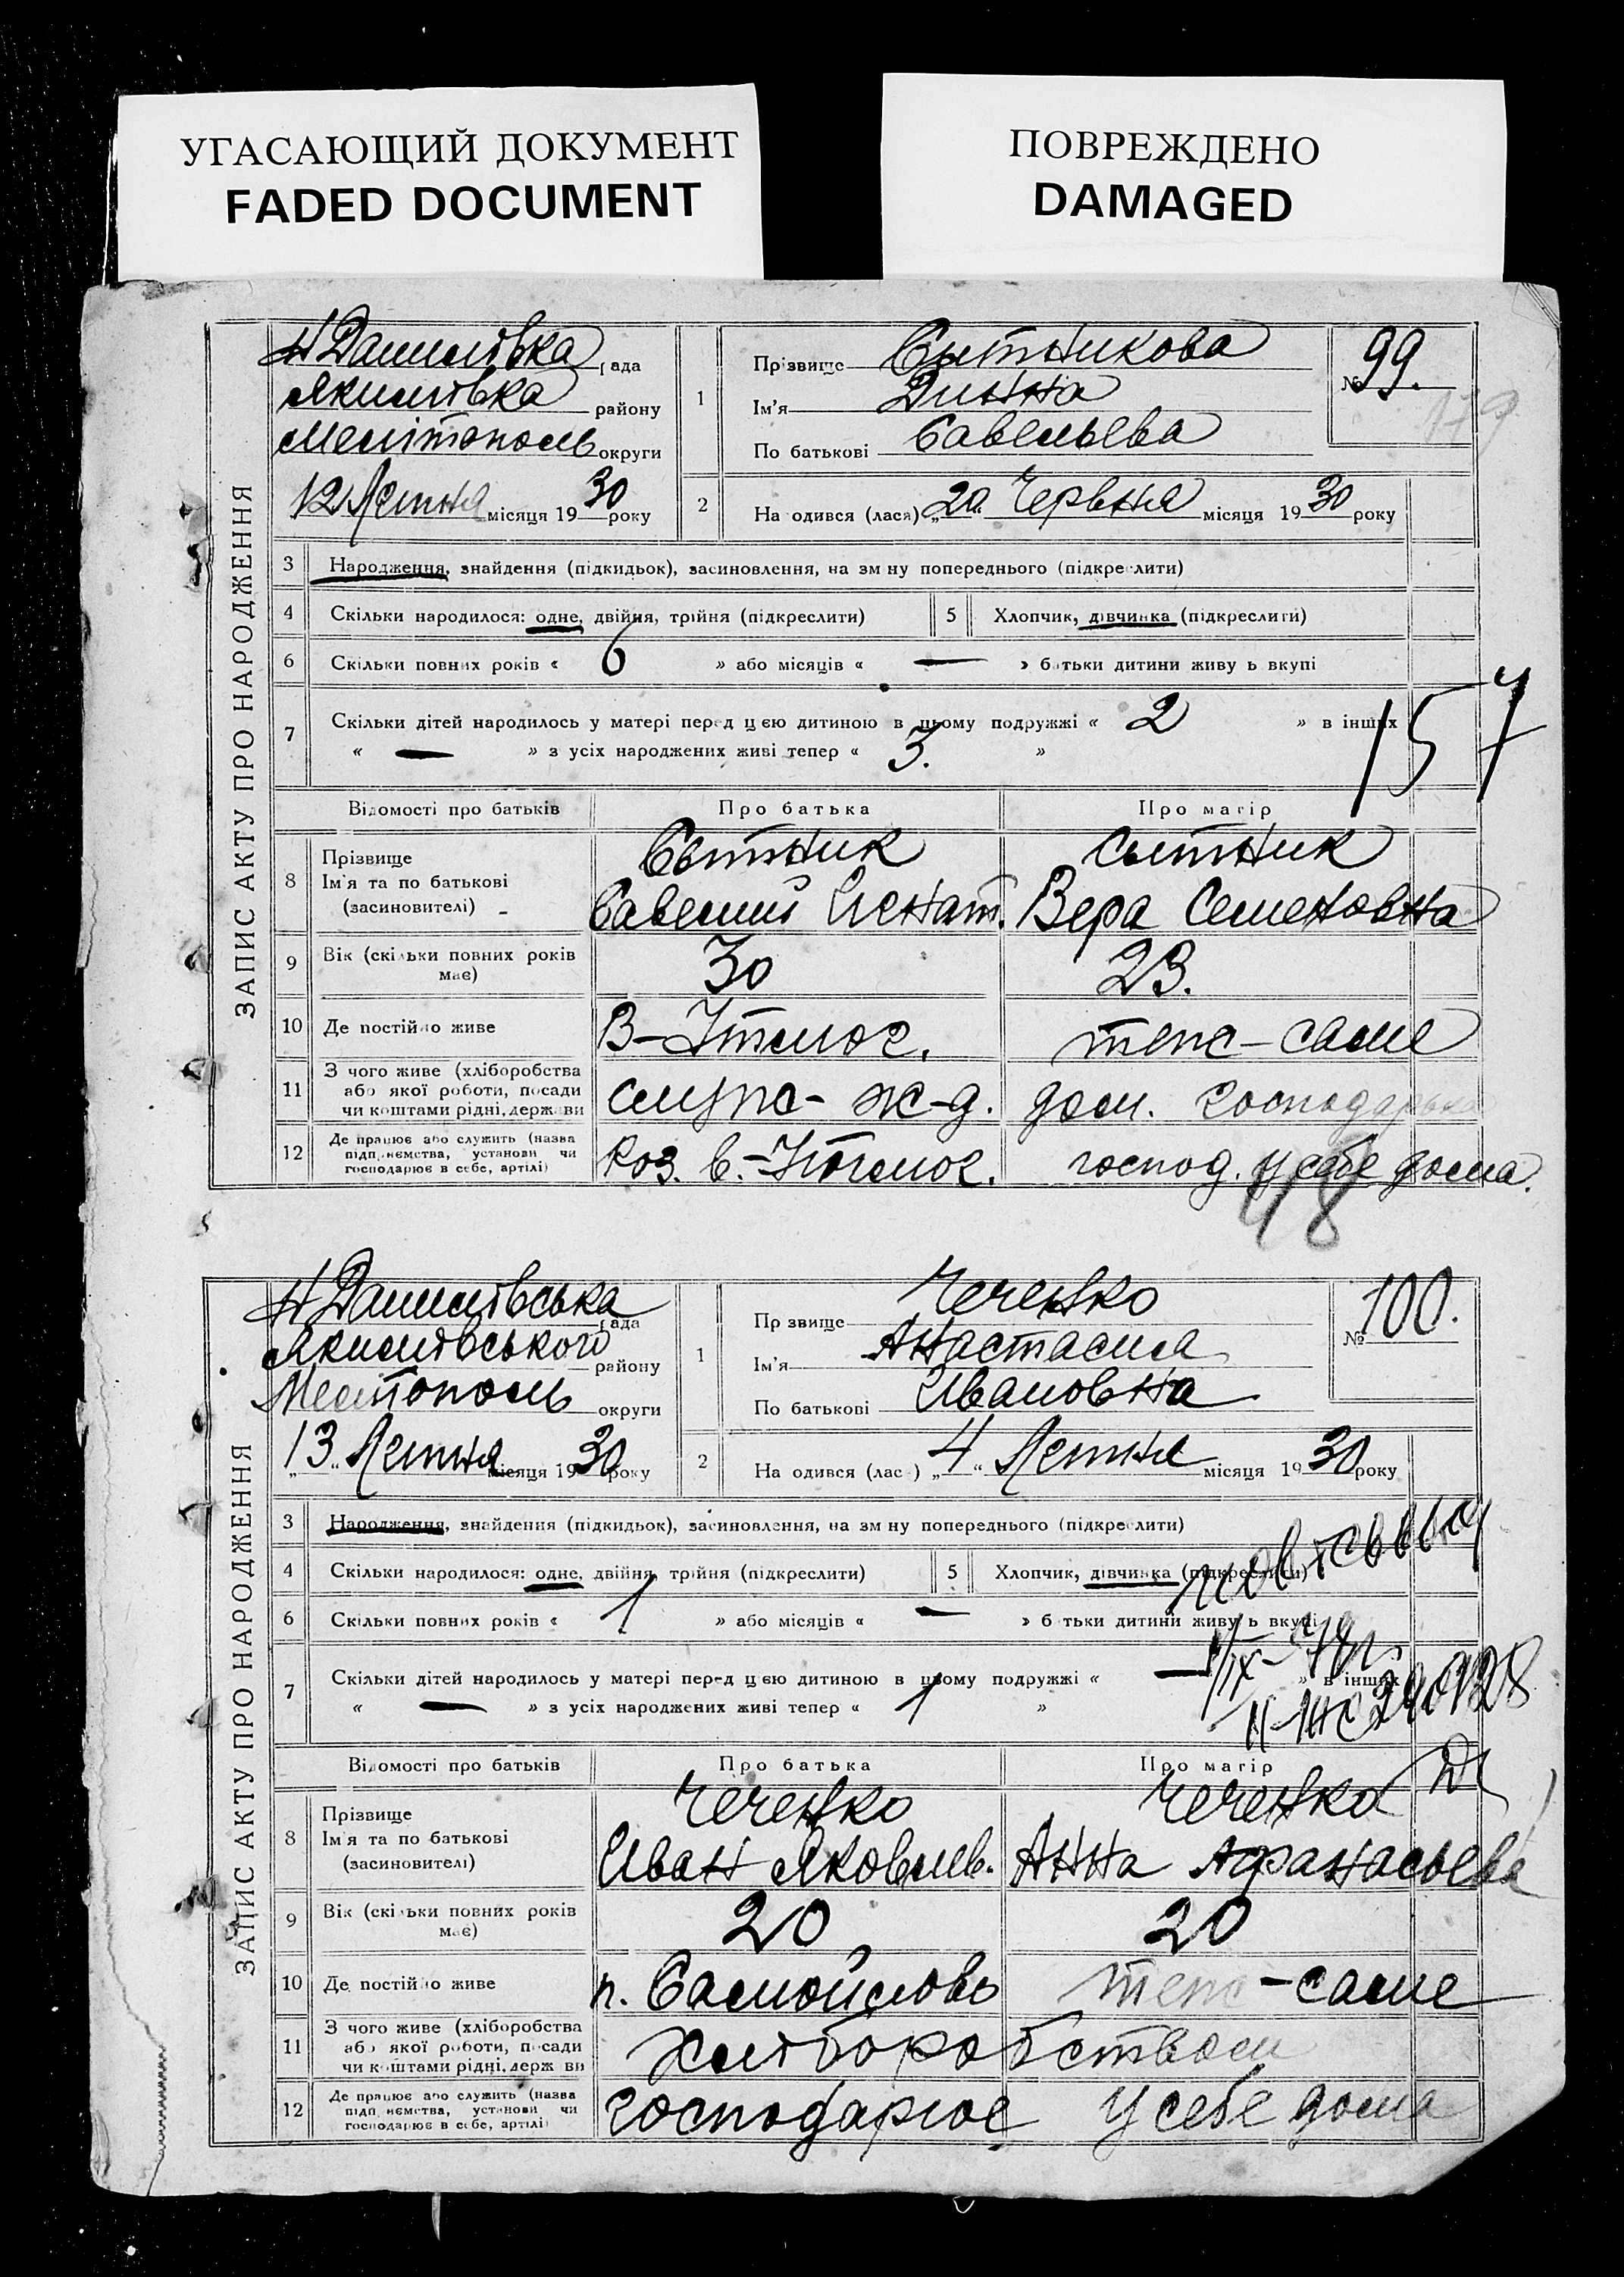 УГАСАЮЩИЙ ДОКУМЕНТ
FADED DOCUMENT
ПОВРЕЖДЕНО
DAMAGED
ЗАПИС АКТУ ПРО НАРОДЖЕННЯ
Н Данилівка рада
Якимівка району
Мелітополь округи
12 Лепня місяця 1930 року
1
Прізвище Сытникова
Ім'я Динна
По батькові Савельева
№ 99.
179
2
На одився (лася) „20“ Червня місяця 1930 року
3 Народження, знайдення (підкидьок), засиновлення, на зм ну попереднього (підкреслити)
4 Скільки народилося: одне, двійня, трійня (підкреслити) 5 Хлопчик, дівчинка (підкреслити)
6 Скільки повних років « 6 » або місяців « — » батьки дитини живу ь вкупі
7 Скільки дітей народилось у матері перед цією дитиною в цьому подружжі « 2 » в інших
« — » з усіх народжених живі тепер « 3. »
157
Відомості про батьків Про батька Про матір
8 Прізвище
Ім'я та по батькові
(засиновителі)
Сытник
Савелий Игнат.
Сытник
Вера Семеновна
9 Вік (скільки повних років має) 30 23.
10 Де постійно живе В-Утлюг. тепс-саме
11 З чого живе (хліборобства
або якої роботи, посади
чи коштами рідні, держави
служ- ж-д. дом. господарька
12 Де працює або служить (назва
підприємства, установи чи
господарює в себе, артілі)
Коз. В.-Утлюг. господ. у себе дома.
48
ЗАПИС АКТУ ПРО НАРОДЖЕННЯ
Н Данилівська рада
Якимівського району
Мелтополь округи
„13“ Лепня місяця 1930 року
1
Пр звище Чеченко
Ім'я Анастасия
По батькові Ивановна
№ 100.
2
На одився (лас ) „4“ Лепня місяця 1930 року
3 Народження, знайдення (підкидьок), засиновлення, на зм ну попереднього (підкреслити)
4 Скільки народилося: одне, двійня, трійня (підкреслити) 5 Хлопчик, дівчинка (підкреслити)
6 Скільки повних років « 1 » або місяців « — » б тьки дитини живу ь вкупі
7 Скільки дітей народилось у матері перед цією дитиною в цьому подружжі « — » в інших
« — » з усіх народжених живі тепер « 1 »
Відомості про батьків Про батька Про матір
8 Прізвище
Ім'я та по батькові
(засиновителі)
Чеченко
Иван Яковлев.
Чеченко
Анна Афанасьева
9 Вік (скільки повних років має) 20 20
10 Де постійно живе п. Самойлово тепс-саме
11 З чого живе (хліборобства
або якої роботи, посади
чи коштами рідні, держ ви
Хліборобством
12 Де працює або служить (назва
підп иємства, установи чи
господарює в себе, артілі)
господарює у себе дома